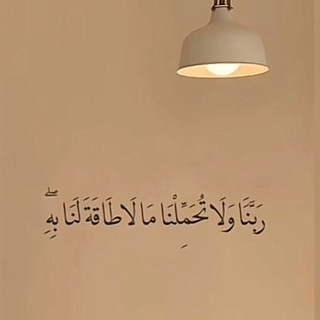 رَبَّنَا وَلَا تُحَمِّلْنَا مَا لَا طَاقَةَ لَنَا بِهِۖ